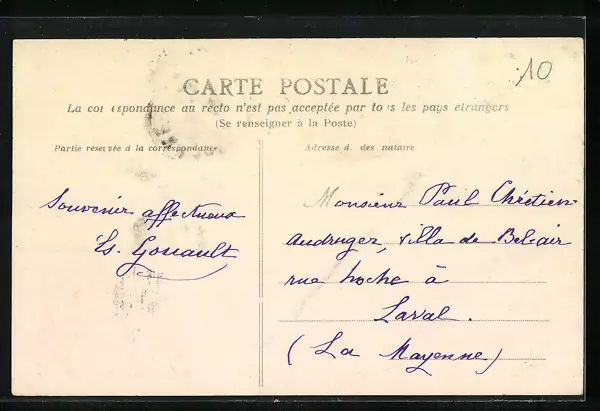 10
CARTE POSTALE
La correspondance au recto n'est pas acceptée par tous les pays étrangers
(Se renseigner à la Poste)
Partie réservée à la correspondance
Adresse d des nataire
Souvenir affectueux
Es. Gouault
Monsieur Paul Chrétien
Andruger, villa de Bel-air
rue hoche à
Laval.
(La Mayenne)